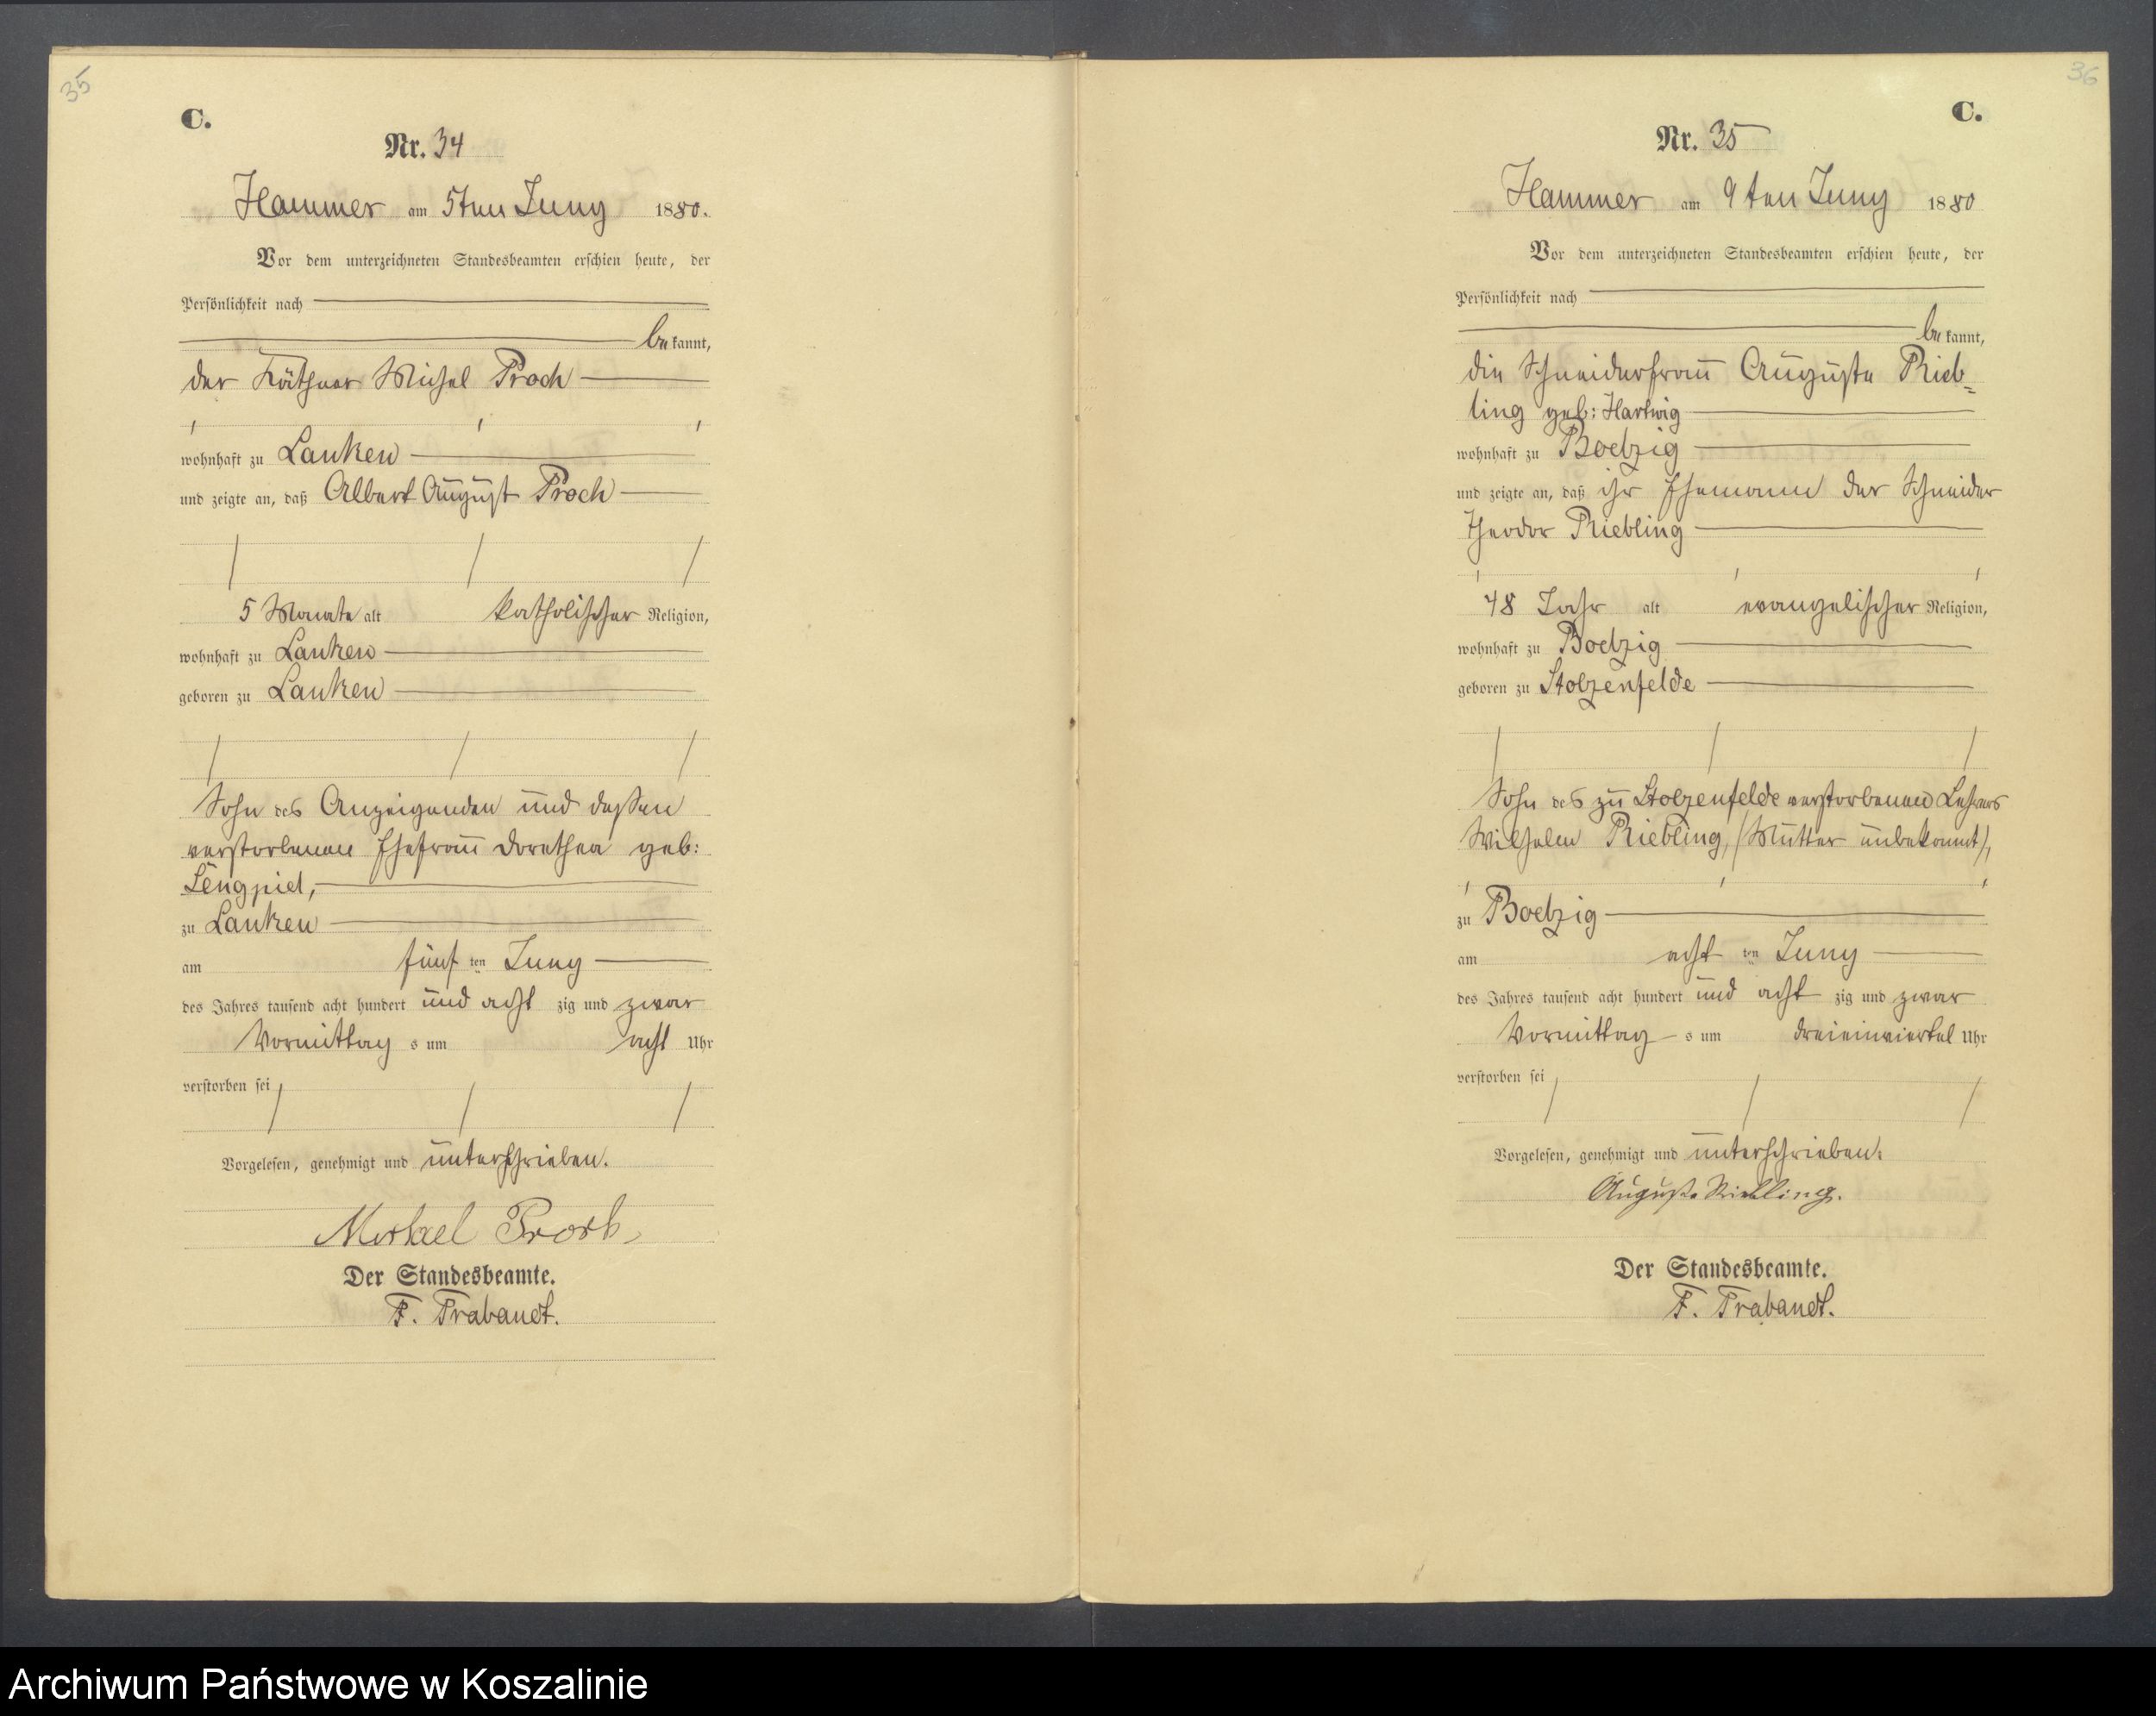 35
C.
Nr. 34
Hammer am 5ten Juny 1880.
Vor dem unterzeichneten Standesbeamten erschien heute, der
Persönlichkeit nach
bekannt,
der Käthner Michel Proch
wohnhaft zu Lanken
und zeigte an, daß Albert August Proch
5 Monate alt katholischer Religion,
wohnhaft zu Lanken
geboren zu Lanken
Sohn des Anzeigenden und dessen
verstorbenen Ehefrau Dorothea geb:
Lengpiel,
zu Lanken
am fünf ten Juny
des Jahres tausend acht hundert und acht zig und zwar
Vormittag s um acht Uhr
verstorben sei
Vorgelesen, genehmigt und unterschrieben.
Michael Proch
Der Standesbeamte.
F. Trabandt.
36
C.
Nr. 35
Hammer am 9ten Juny 1880
Vor dem unterzeichneten Standesbeamten erschien heute, der
Persönlichkeit nach
bekannt,
die Schneiderfrau Auguste Rieb=
ling geb: Hartwig
wohnhaft zu Boetzig
und zeigte an, daß ihr Ehemann der Schneider
Theodor Riebling
48 Jahr alt evangelischer Religion,
wohnhaft zu Boetzig
geboren zu Stolzenfelde
Sohn des zu Stolzenfelde verstorbenen Lehrers
Wilhelm Riebling, (Mutter unbekannt),
zu Boetzig
am acht ten Juny
des Jahres tausend acht hundert und acht zig und zwar
Vormittag s um dreieinviertel Uhr
verstorben sei
Vorgelesen, genehmigt und unterschrieben.
Auguste Riebling.
Der Standesbeamte.
F. Trabandt.
Archiwum Państwowe w Koszalinie